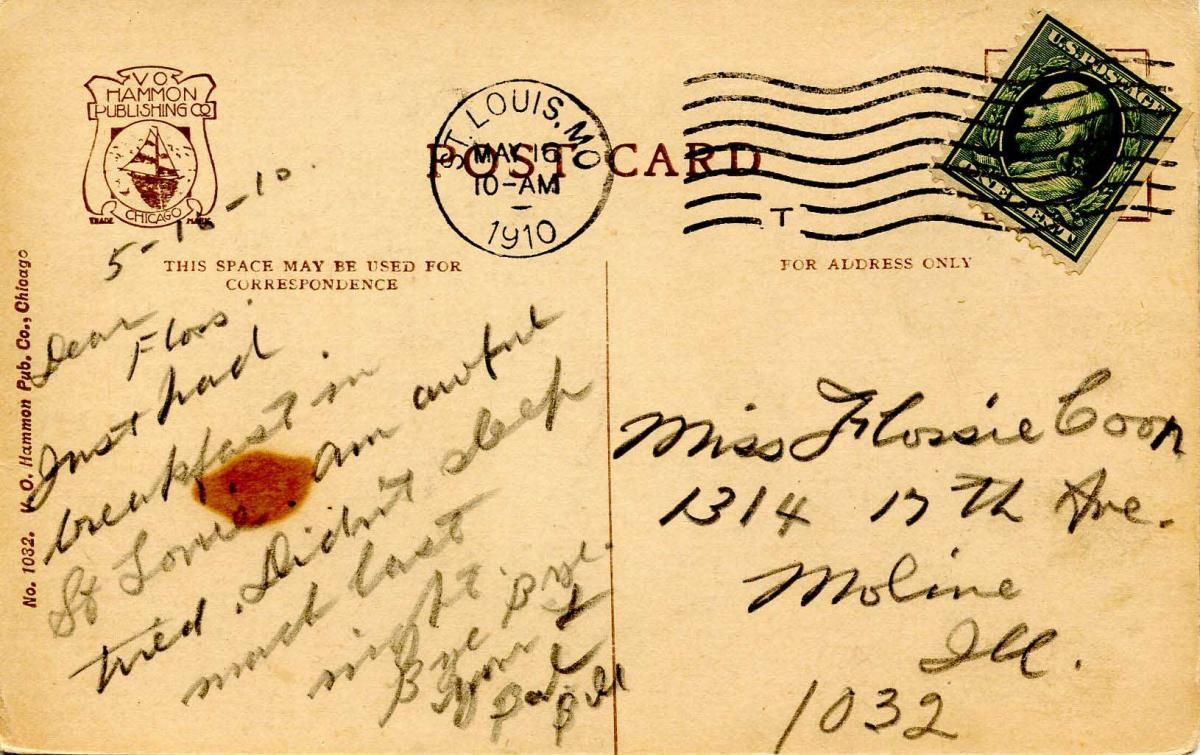 V O
HAMMON
PUBLISHING CO
CHICAGO
TRADE MARK
ST. LOUIS, MO
MAY 16
10-AM
1910
POST CARD
T
U.S. POSTAGE
5-16-10.
THIS SPACE MAY BE USED FOR
CORRESPONDENCE
FOR ADDRESS ONLY
No. 1032. V. O. Hammon Pub. Co., Chicago
Dear
Floss.
Just had
breakfast in
St Louis. Am awful
tired. Didn't sleep
much last
night.
Bye Bye.
Your
Pal
Bill
Miss Flossie Coon
1314 17th Ave.
Moline
Ill.
1032